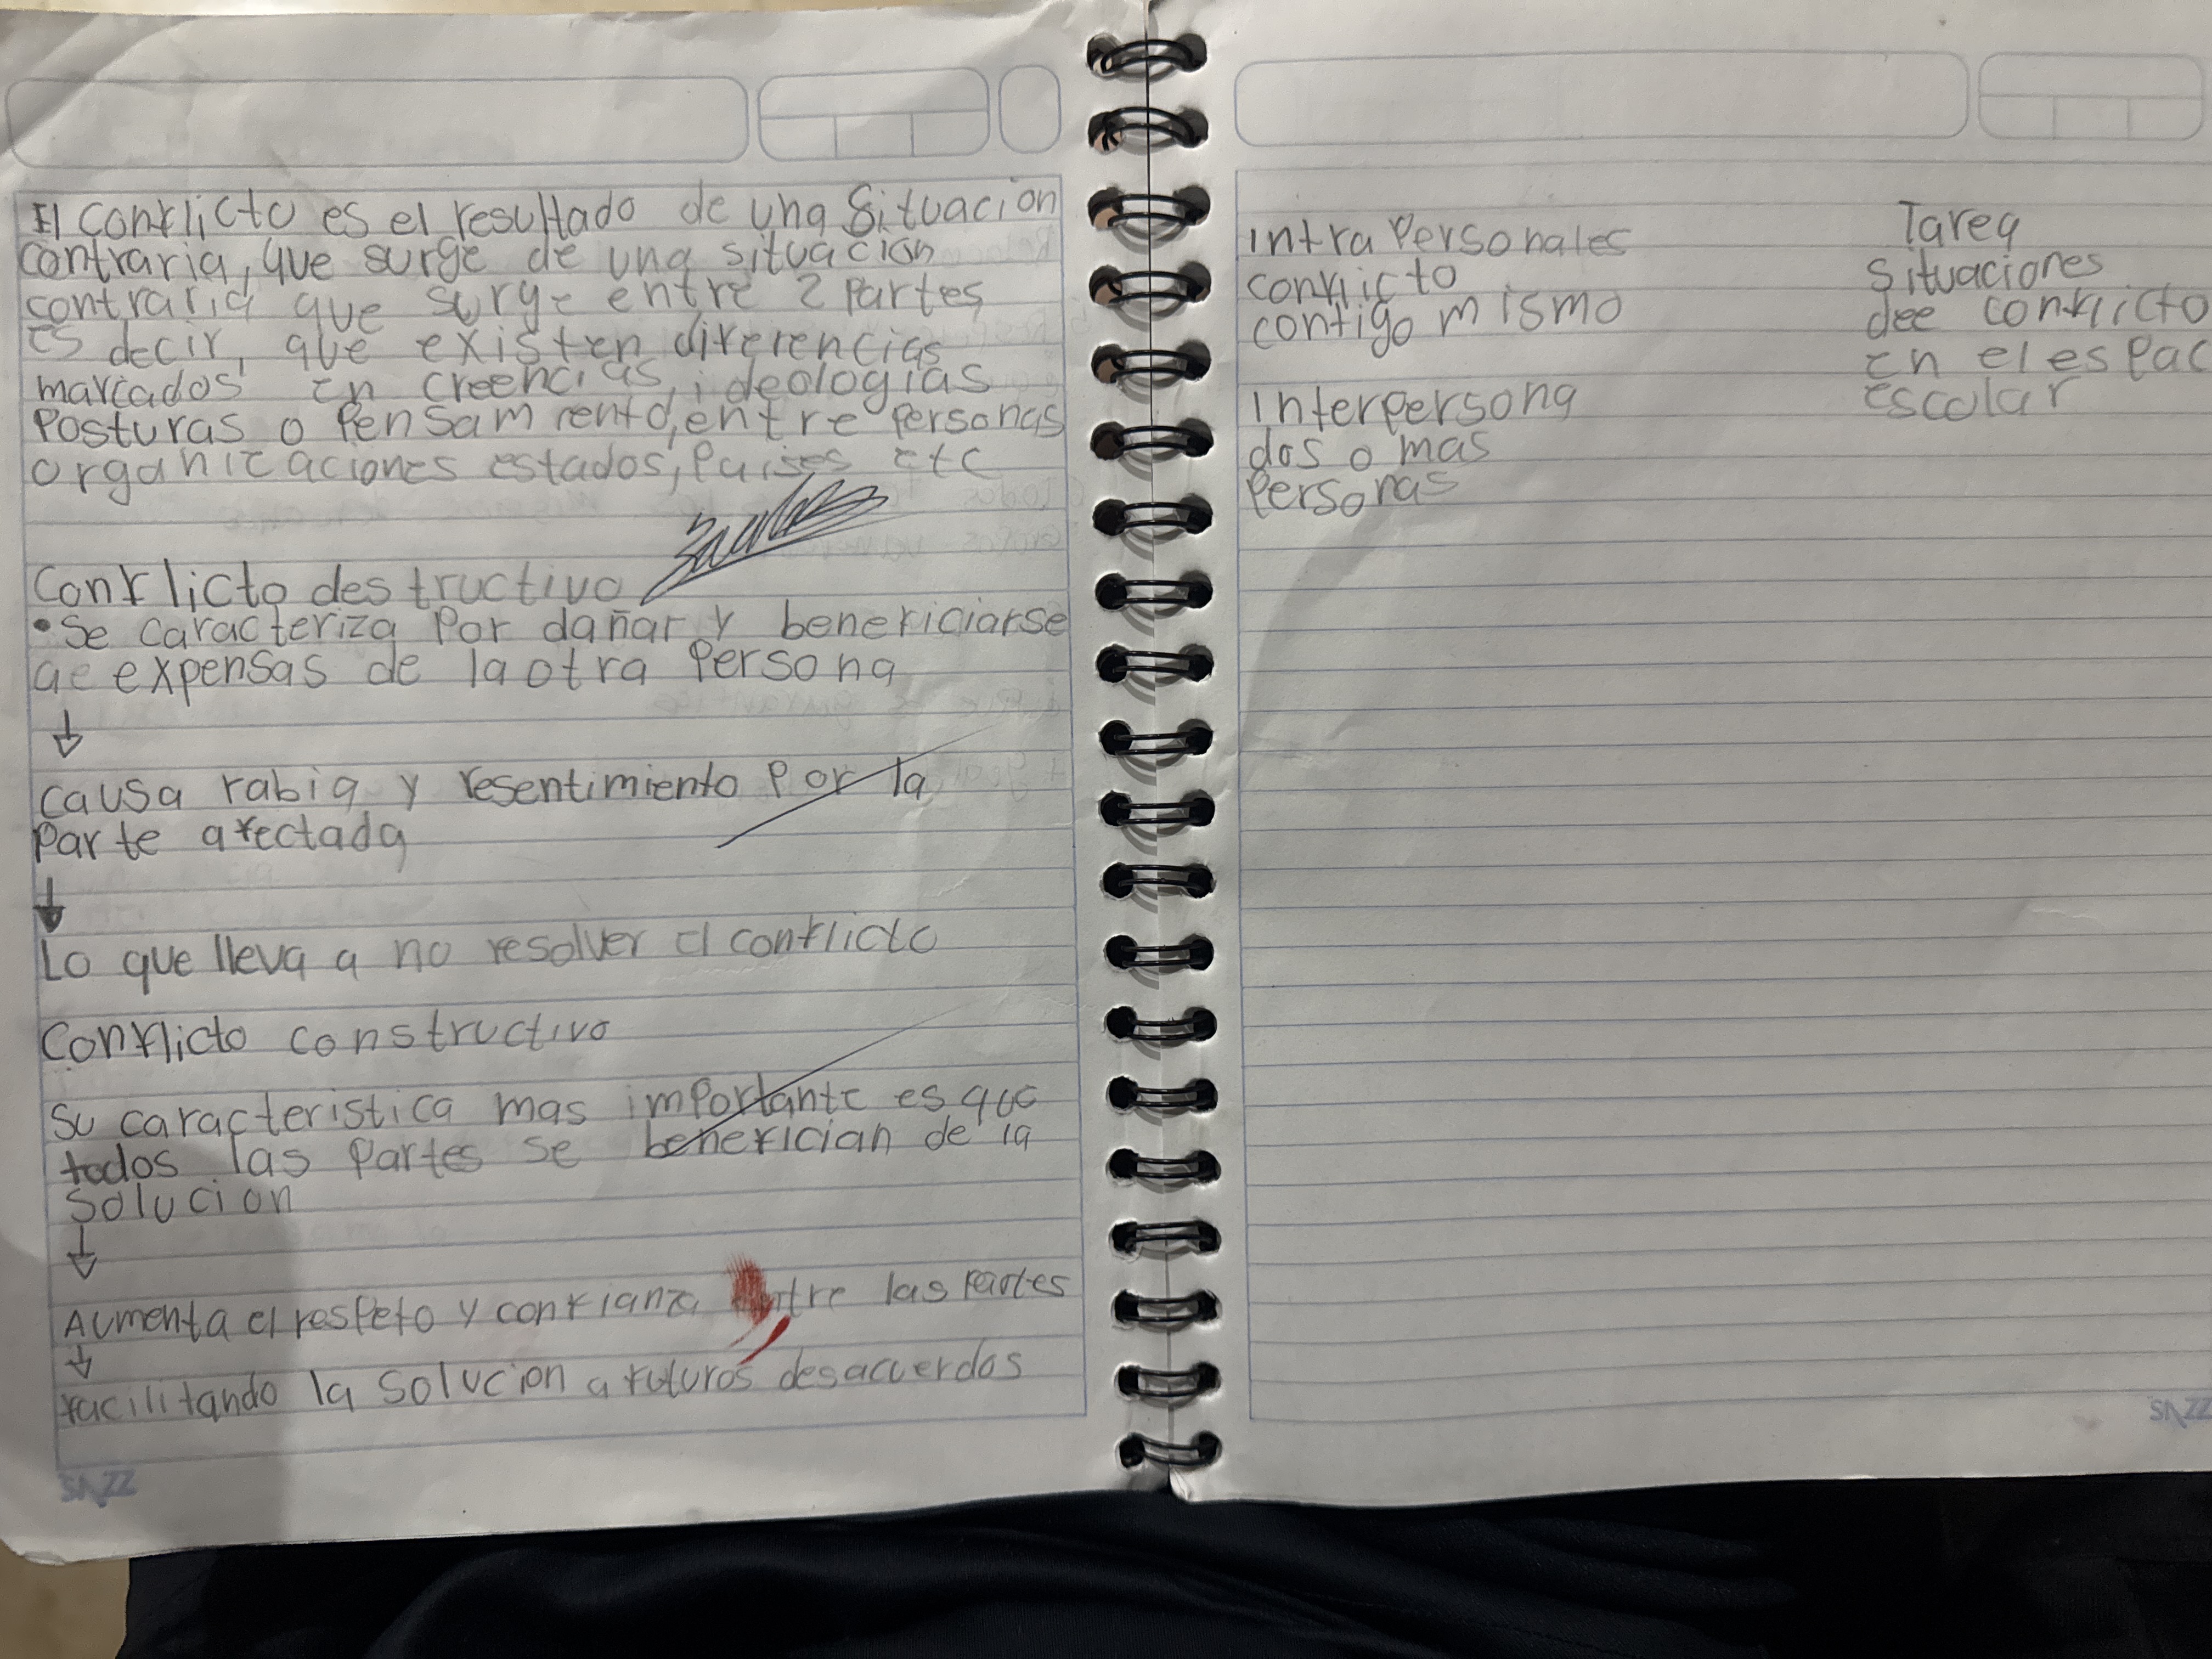 El conflicto es el resultado de una situacion
contraria, que surge de una situacion
contraria que surge entre 2 Partes
es decir, que existen diferencias
marcados en creencias, ideologias
Posturas o Pensamiento, entre Personas
organizaciones estados, Paises etc
Conflicto destructivo
• Se caracteriza Por dañar y beneficiarse
ae expensas de la otra Persona
↓
causa rabia y resentimiento Por la
Parte afectada
↓
Lo que lleva a no resolver el conflicto
Conflicto constructivo
Su caracteristica mas importante es que
todos las Partes se benefician de la
Solucion
↓
Aumenta el respeto y confianza entre las Partes
↓
facilitando la solucion a futuros desacuerdos
SAZZ
intra Personales
conflicto
contigo mismo
Interpersona
dos o mas
Personas
Tarea
Situaciones
dee conflicto
en el espac
escolar
SAZZ